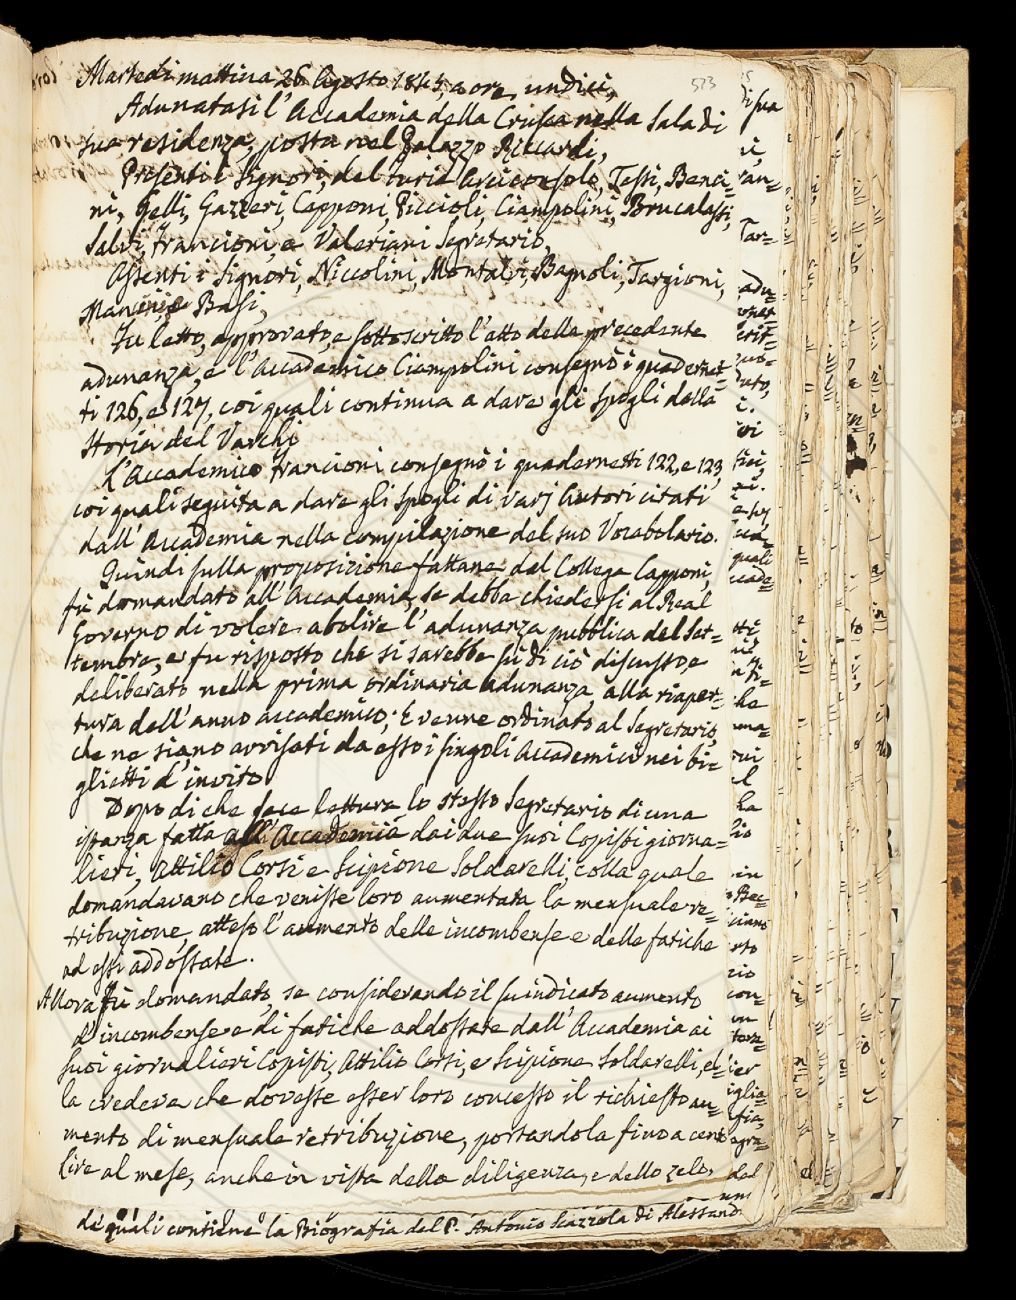 573
Martedì mattina 26 Agosto 1845 a ore undici,
Adunatasi l'Accademia della Crusca nella Sala di
sua residenza, posta nel Palazzo Riccardi,
Presenti i Signori, del Furia Arciconsolo, Tassi, Benci=
ni, Gelli, Gazzeri, Capponi, Piccioli, Ciampolini, Brucalassi,
Salvi, Francioni, e Valeriani Segretario,
Assenti i Signori, Niccolini, Montalvi, Bagnoli, Targioni,
Mancini, e Basi,
Fu letto, approvato, e sottoscritto l'atto della precedente
adunanza, e l'Accademico Ciampolini consegnò i quadernet=
ti 126, e 127, coi quali continua a dare gli spogli della
Storia del Varchi
L'Accademico Francioni consegnò i quadernetti 122, e 123,
coi quali seguita a dare gli spogli di varj Autori citati
dall'Accademia nella compilazione del suo Vocabolario.
Quindi sulla proposizione fattane dal Collega Capponi,
fù domandato all'Accademia, se debba chiedersi al Real
Governo di volere abolire l'adunanza pubblica del Set=
tembre, e fu risposto che si sarebbe sù di ciò discusso e
deliberato nella prima ordinaria adunanza, alla riaper=
tura dell'anno accademico; E venne ordinato al Segretario,
che ne siano avvisati da esso i singoli Accademici nei bi=
glietti d'invito.
Dopo di che fece lettura lo stesso Segretario di una
istanza fatta all'Accademia dai due suoi Copisti giorna=
lieri, Attilio Corsi e Scipione Soldarelli, colla quale
domandavano che venisse loro aumentata la mensuale re=
tribuzione, atteso l'aumento delle incombense e delle fatiche
ad essi addossate.
Allora fù domandato, se considerando il suindicato aumento
d'incombense e di fatiche addossate dall'Accademia ai
suoi giornalieri Copisti, Attilio Corsi, e Scipione Soldarelli, el=
la credeva che dovesse esser loro concesso il richiesto au=
mento di mensuale retribuzione, portandola fino a cento
lire al mese, anche in vista della diligenza, e dello zelo,
de' quali contiene la Biografia del P. Antonio Scazzola di Alessand.